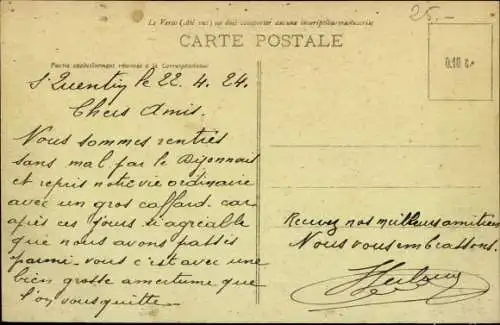 Le Verso (côté vue) ne doit comporter aucune inscription manuscrite
25.-
CARTE POSTALE
Partie exclusivement réservée à la Correspondance
0.10 c.
St Quentin le 22. 4. 24.
Chers Amis.
Nous sommes rentrés
sans mal par le Dijonnais
et repris notre vie ordinaire
avec un gros caffard. car
après ces jours si agréable
que nous avons passés
parmi vous c'est avec une
bien grosse amertume que
l'on vous quitte.
Recevez nos meilleurs amitiés
Nous vous embrassons.